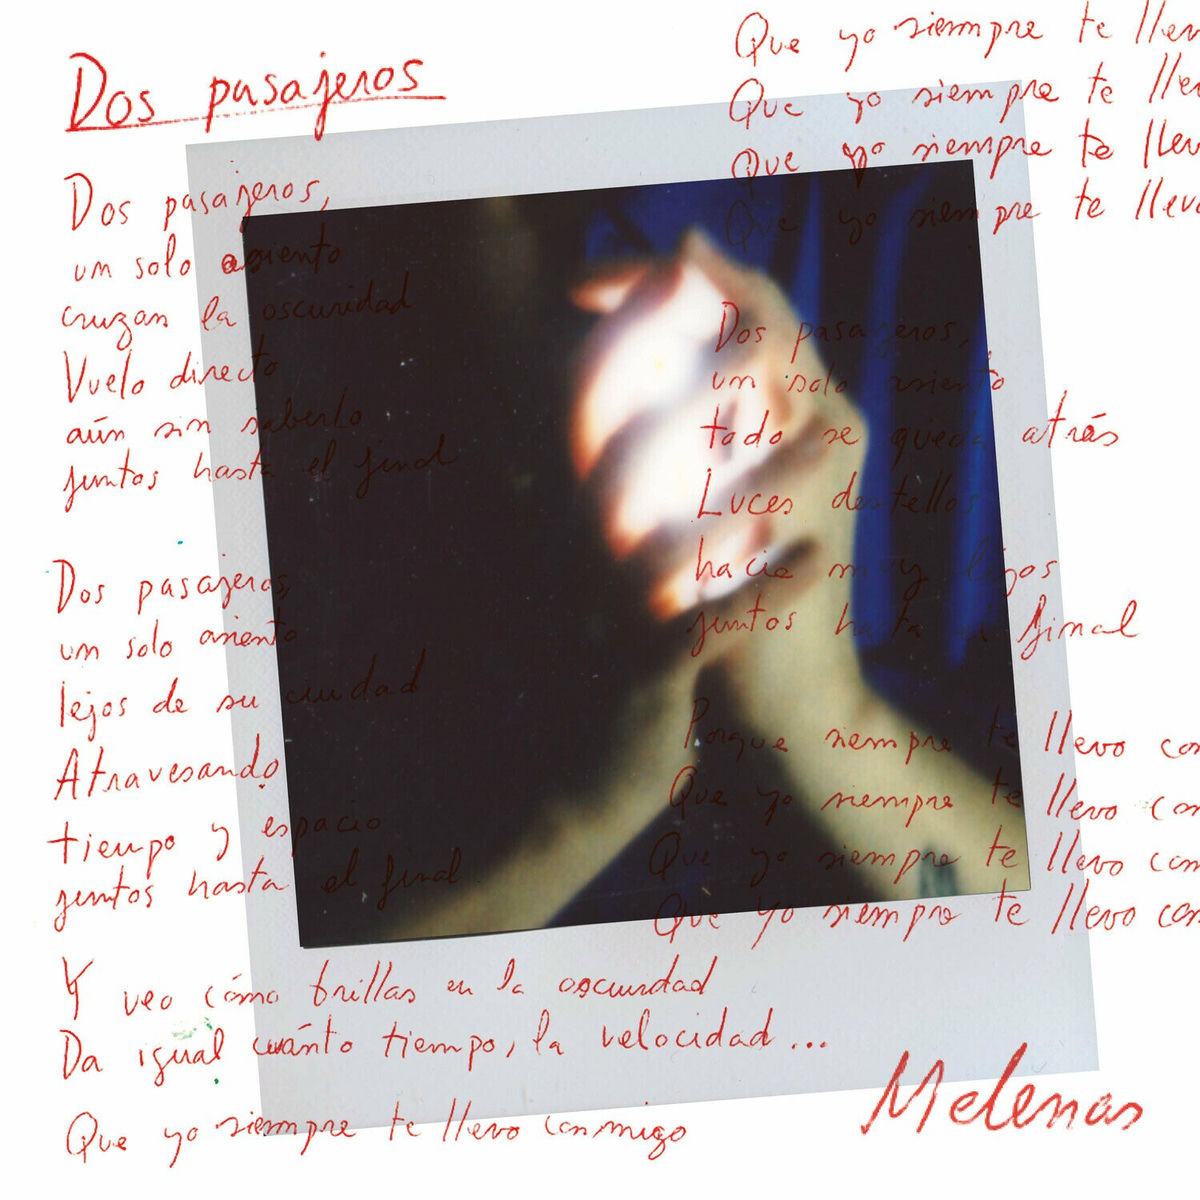 Dos pasajeros
Dos pasajeros,
un solo asiento
cruzan la oscuridad
Vuelo directo
aún sin saberlo
juntos hasta el final
Dos pasajeros,
un solo asiento
lejos de su ciudad
Atravesando
tiempo y espacio
juntos hasta el final
Y veo cómo brillas en la oscuridad
Da igual cuánto tiempo, la velocidad...
Que yo siempre te llevo conmigo
Que yo siempre te llev
Que yo siempre te llev
Que yo siempre te llev
Que yo siempre te llevo
Dos pasajeros,
un solo asiento
todo se queda atrás
Luces destellos
hacia muy lejos
juntos hasta el final
Porque siempre te llevo con
Que yo siempre te llevo con
Que yo siempre te llevo con
Que yo siempre te llevo con
Melenas